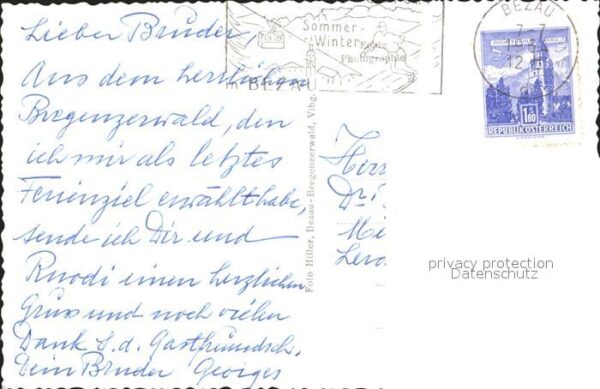 Lieber Bruder
Aus dem herrlichen
Bregenzerwald, den
ich mir als letztes
Ferienziel erwählt habe,
sende ich Dir und
Ruodi einen herzlichen
Gruss und noch vielen
Dank f. d. Gastfreundsch.
Dein Bruder Georges
Sommer-
Winter
Photographie
BEZAU
BEZAU
7-7
12
1.80
REPUBLIK ÖSTERREICH
Foto Hiller, Bezau-Bregenzerwald, Vlbg.
Herr
Dr.
privacy protection
Datenschutz